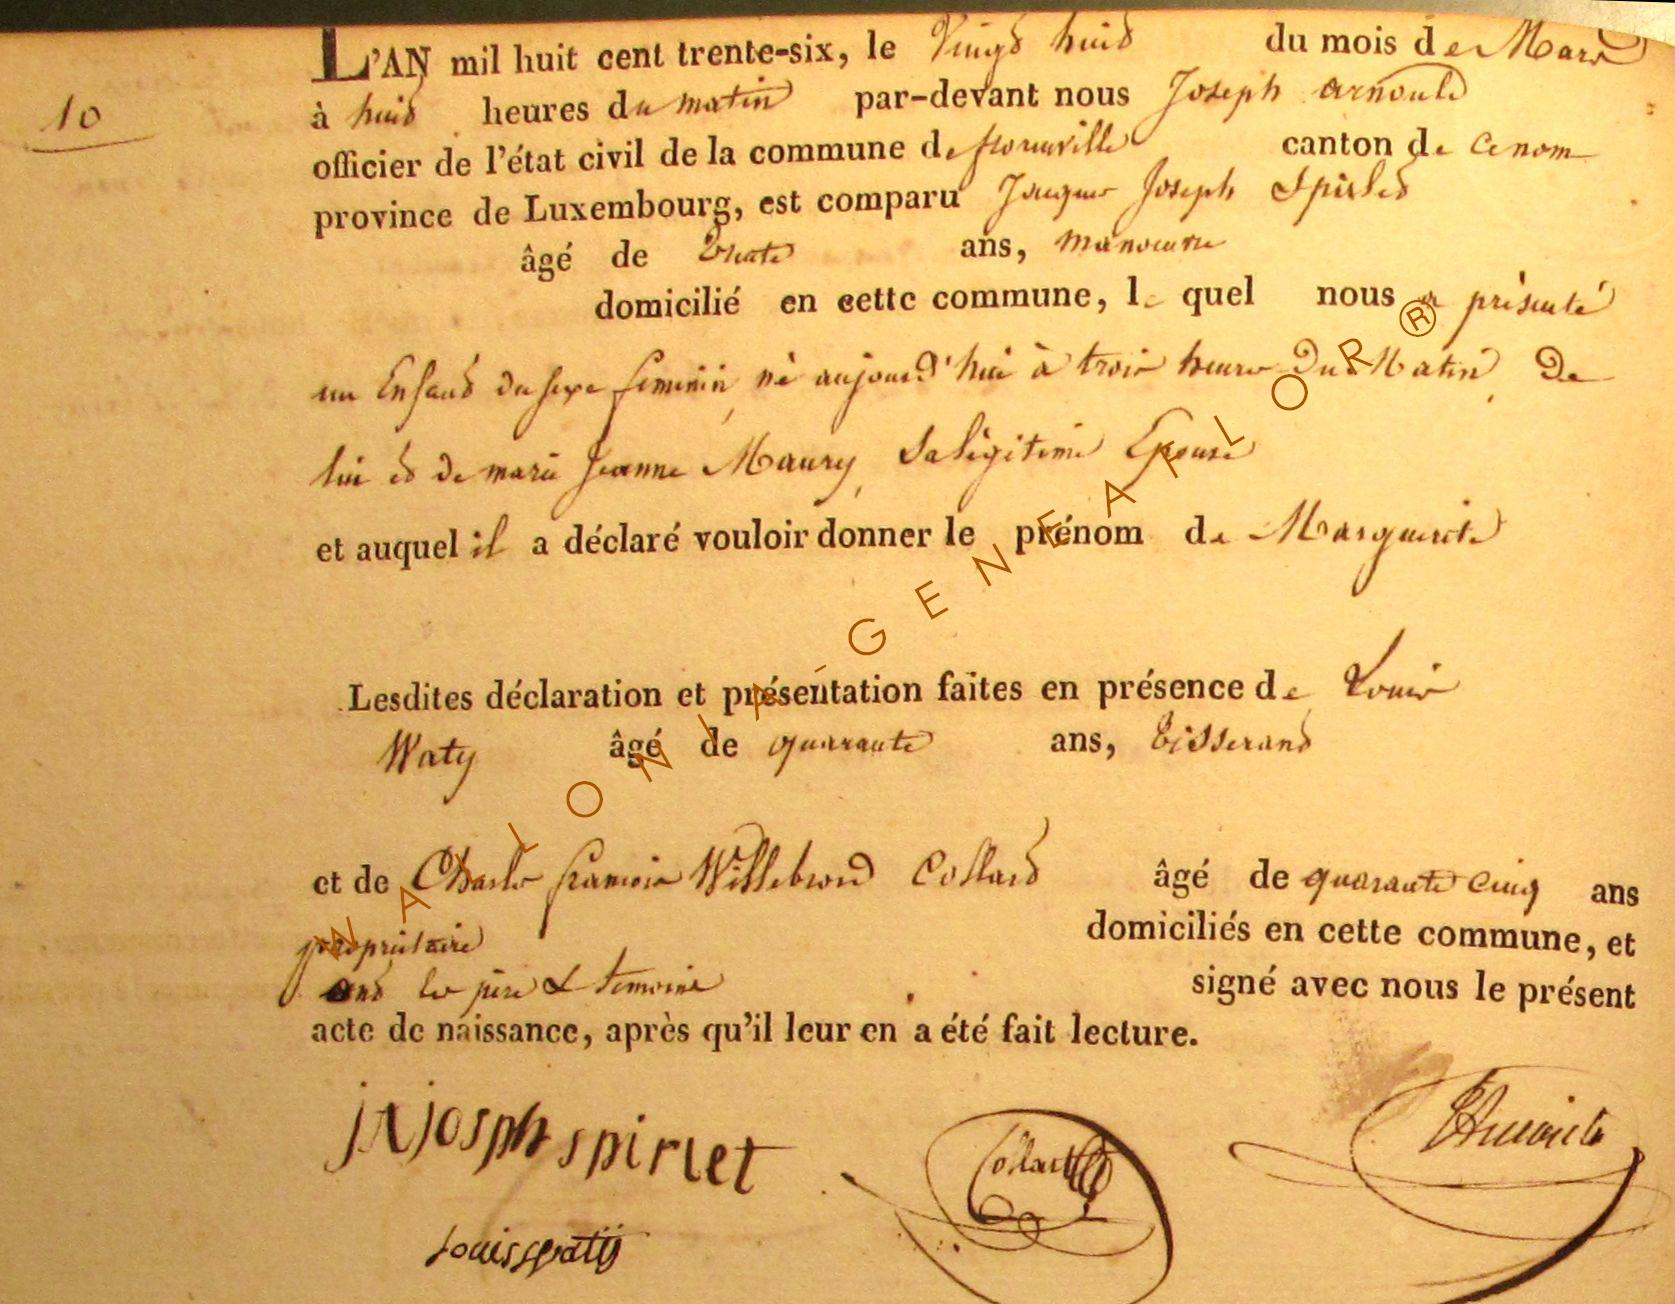 L'AN mil huit cent trente-six, le Vingt huit du mois de Mars
10
à huit heures du matin par-devant nous Joseph arnould
officier de l'état civil de la commune de florenville canton de ce nom
province de Luxembourg, est comparu Jacques Joseph Spirlet
âgé de trente ans, manoeuvre
domicilié en cette commune, le quel nous a présenté
un Enfant du sexe feminin, né aujourd'hui à trois heures Du Matin, De
lui et de marie Jeanne Maury, Sa légitime Epouse
et auquel il a déclaré vouloir donner le prénom de Marguerite
Lesdites déclaration et présentation faites en présence de Louis
Waty âgé de quarante ans, tisserand
et de Charles francois Willebrord Collard âgé de quarante cinq ans
propriétaire domiciliés en cette commune, et
ont les père & temoins signé avec nous le présent
acte de naissance, après qu'il leur en a été fait lecture.
josph spirlet
Collart
Louis waty
WALLONIA-GENEAFLOR®